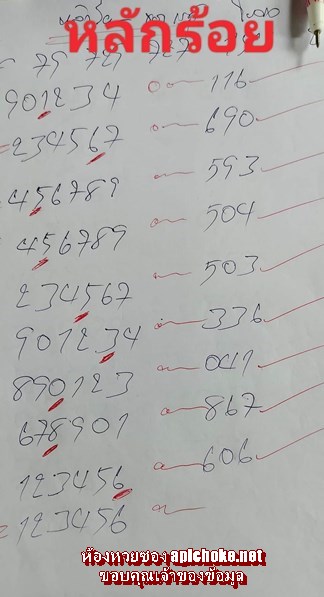 หลักร้อย
79 729 727
901234 116
234567 690
456789 593
456789 504
234567 503
901234 336
890123 041
678901 867
123456 606
=123456
ห้องหวยซอง apichoke.net
ขอบคุณเจ้าของข้อมูล